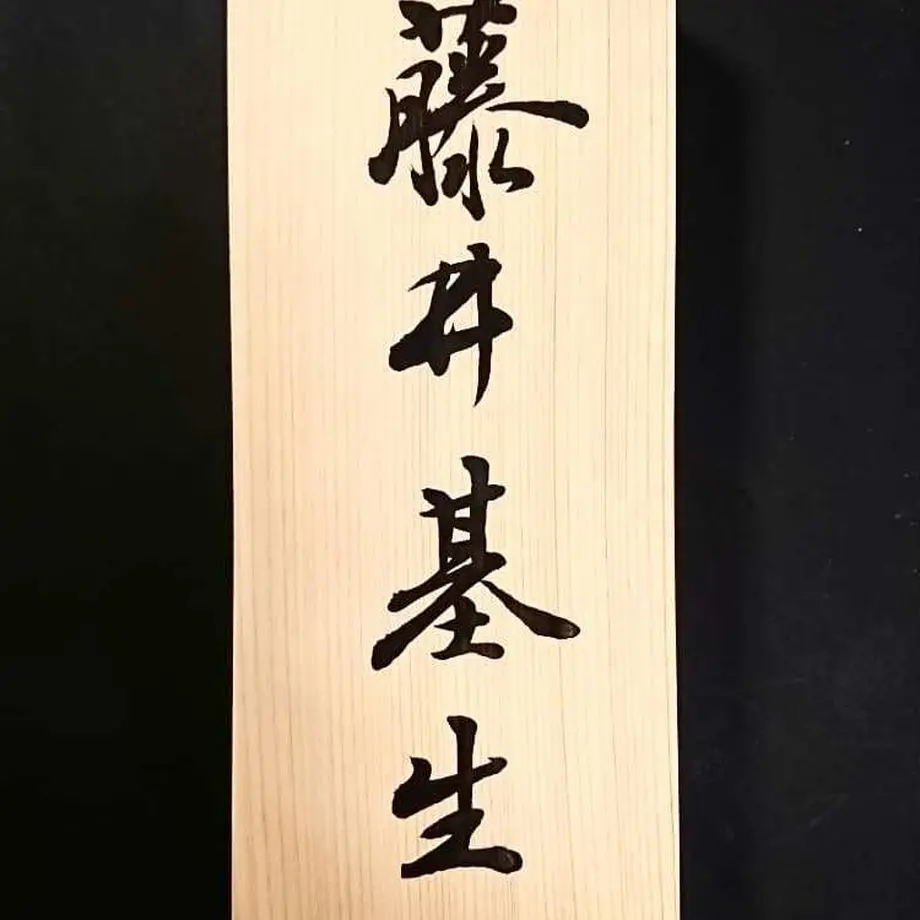 藤井基生